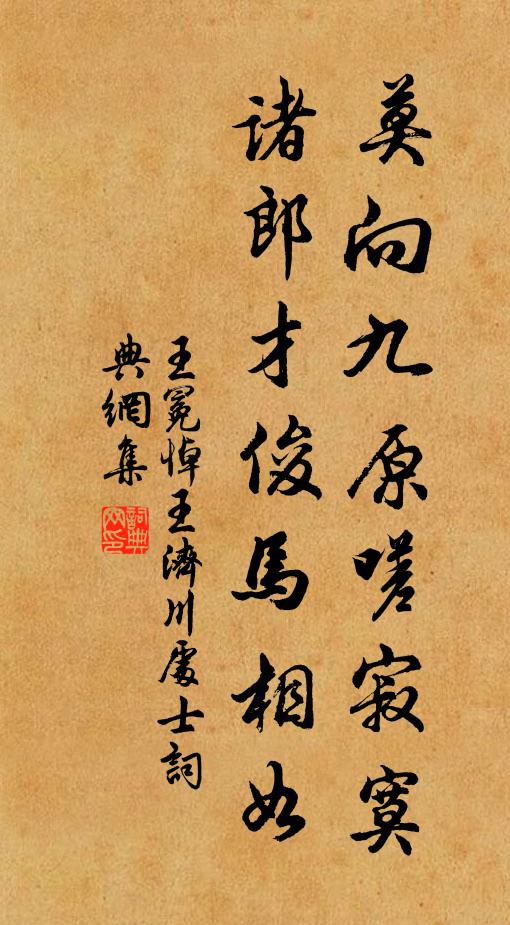 莫向九原嗟寂寞
諸郎才俊馬相如
王冕悼王濟川處士詞
典網集
詞典網印